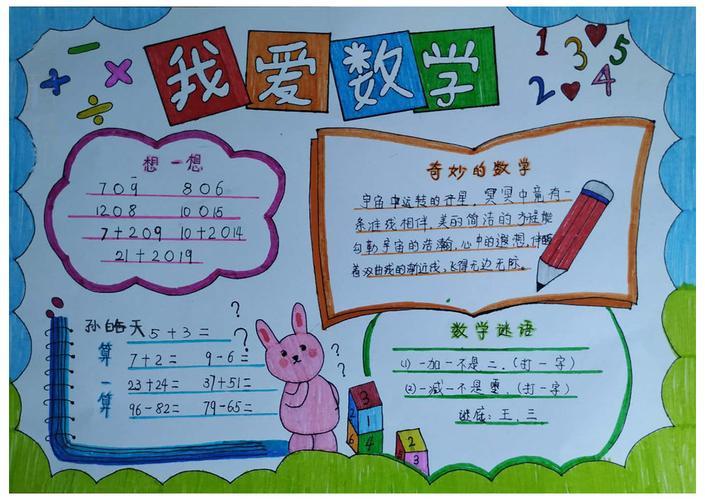 + − × ÷
我爱数学
1 3 5
2 4
想一想
7○9 8○6
12○8 10○15
7+2○9 10+2○14
21+2○19
奇妙的数学
宇宙中运转的行星，冥冥中竟有一
条准线相伴，美的简洁的方程能
勾勒宇宙的浩瀚，心中的遐想，伴随
着双曲线的渐近线，飞得无边无际。
孙皓天
算一算
5+3=
7+2= 9-6=
23+24= 37+51=
96-82= 79-65=
? ? ? ?
数学谜语
(1)一加一不是二．(打一字)
(2)一减一不是零．(打一字)
谜底：王、三
3
1
6 4
2
1 3